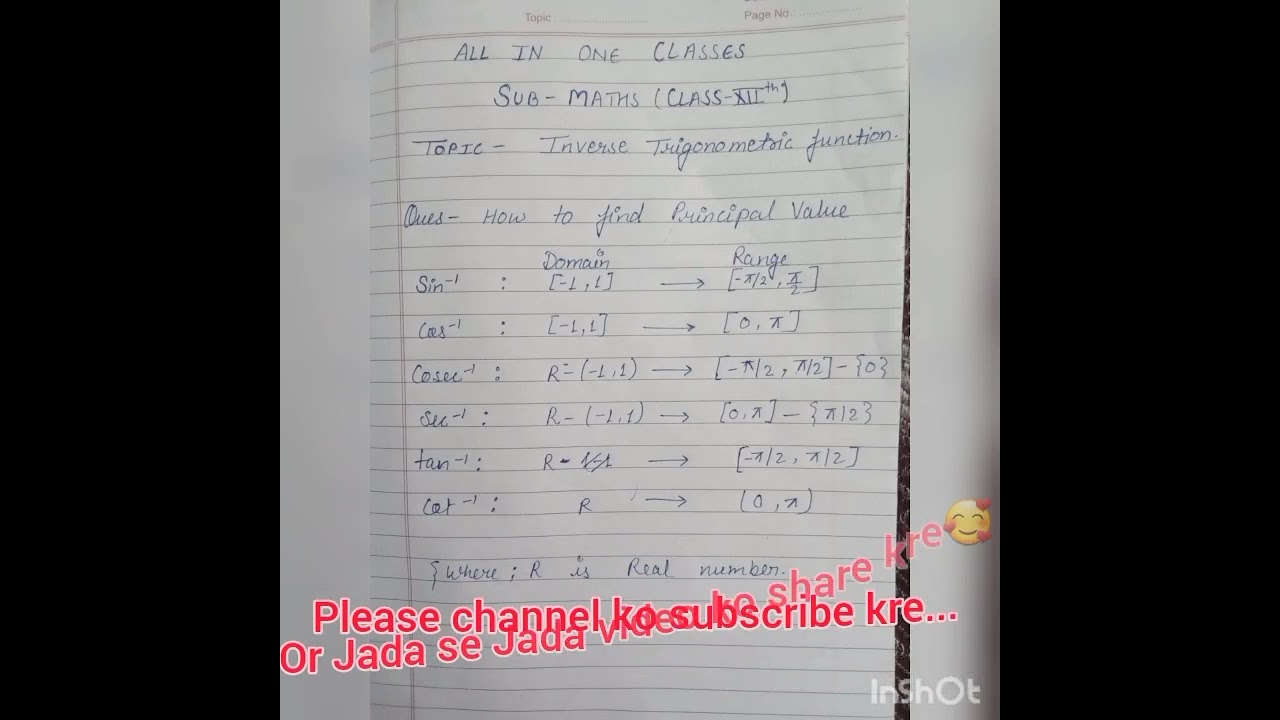 Topic : ........................
Page No.: ..................
ALL IN ONE CLASSES
SUB- MATHS (CLASS-XIIth)
TOPIC - Inverse Trigonometric function.
Ques- How to find Principal Value
Domain Range
Sin⁻¹ : [-1,1] → [-π/2, π/2]
Cos⁻¹ : [-1,1] → [0, π]
Cosec⁻¹ : R-(-1,1) → [-π/2, π/2] - {0}
Sec⁻¹ : R-(-1,1) → [0,π] - {π/2}
tan⁻¹ : R → [-π/2, π/2]
Cot⁻¹ : R → (0, π)
{Where ; R is Real number.
Please channel ko subscribe kre...
Or Jada se Jada video ko share kre🥰
InShOt